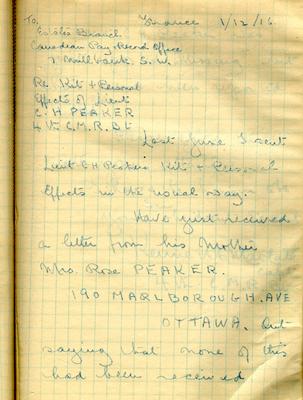 To, France 1/12/16
Estates Branch
Canadian Pay & Record Office
7 Millbank. S.W.
Re Kit & Personal
Effects of Lieut
C. H PEAKER
4th C.M.R. Bn
Last June I sent
Lieut C H Peakers Kit & Personal
Effects in the usual way.
Have just received
a letter from his Mother
Mrs. Rose PEAKER.
190 MARLBOROUGH. AVE
OTTAWA. Ont
saying that none of this
had been received